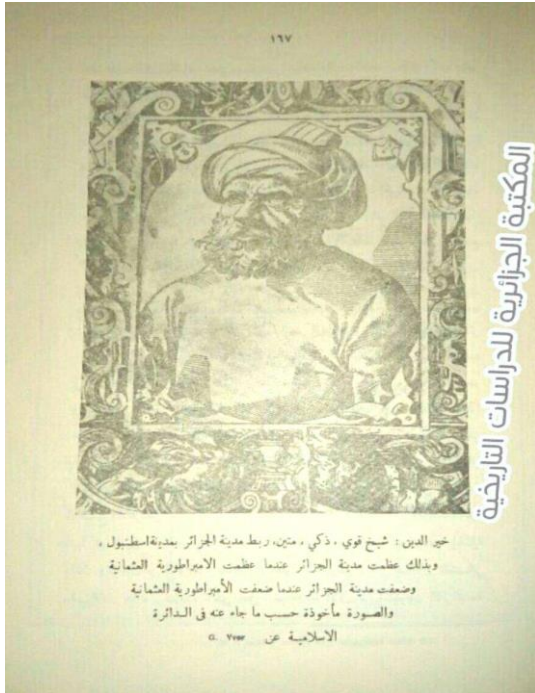 ١٦٧
المكتبة الجزائرية للدراسات التاريخية
خير الدين : شيخ قوي ، ذكي ، متين، ربط مدينة الجزائر بمدينة اسطنبول ،
وبذلك عظمت مدينة الجزائر عندما عظمت الامبراطورية العثمانية
وضعفت مدينة الجزائر عندما ضعفت الأمبراطورية العثمانية
والصورة مأخوذة حسب ما جاء عنه فى الدائرة
الاسلامية عن G. Yver